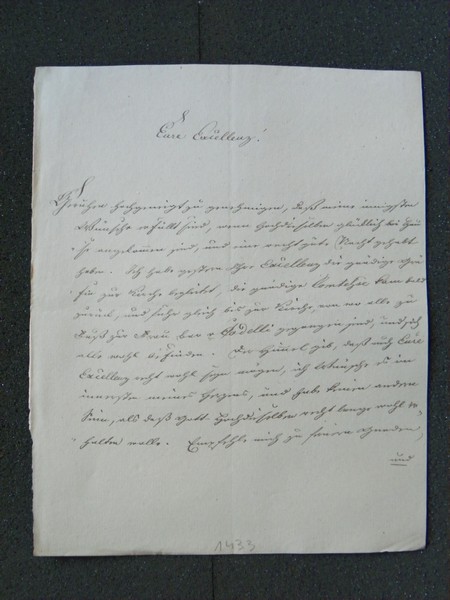 Eure Excellenz!
Geruhen hochgeneigt zu genehmigen, daß meine innigsten
Wünsche erfüllt sind, wenn Hochdieselben glücklich bei Hau
se angekommen sind, und eine recht gute Nacht gehabt
haben. Ich habe gestern Ihro Excellenz die gnädige Grä
fin zur Kirche begleitet, die gnädige Comtesse kam bald
zurück, und ging gleich bis zur Kirche, von wo alle zu
Fuß zur Frau gegangen sind, und sich
alle wohl befinden. Der Himmel gib, daß auch Eure
Excellenz recht wohl sein mögen, ich wünsche es im
innersten meines Herzens, und habe keinen andern
Sinn, als daß Gott Hochdieselben recht lange wohl er
halten wolle. Empfehle mich zu fernern Gnaden,
und
1433